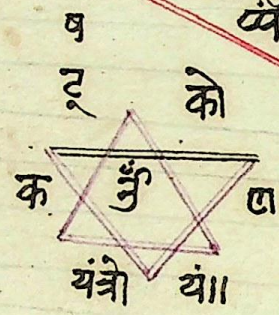 ष
ट् को
क ण
यंत्रो यं॥